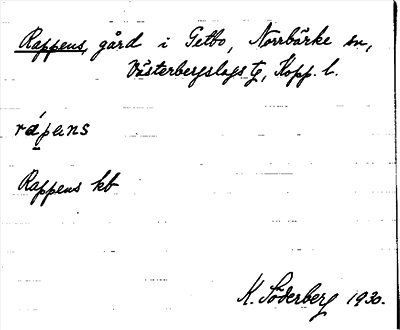 Rappens, gård i Getbo, Norrbärke sn,
Västerbergslags tg, Kopp. l.
rápens
Rappens kb
K. Söderberg 1930.